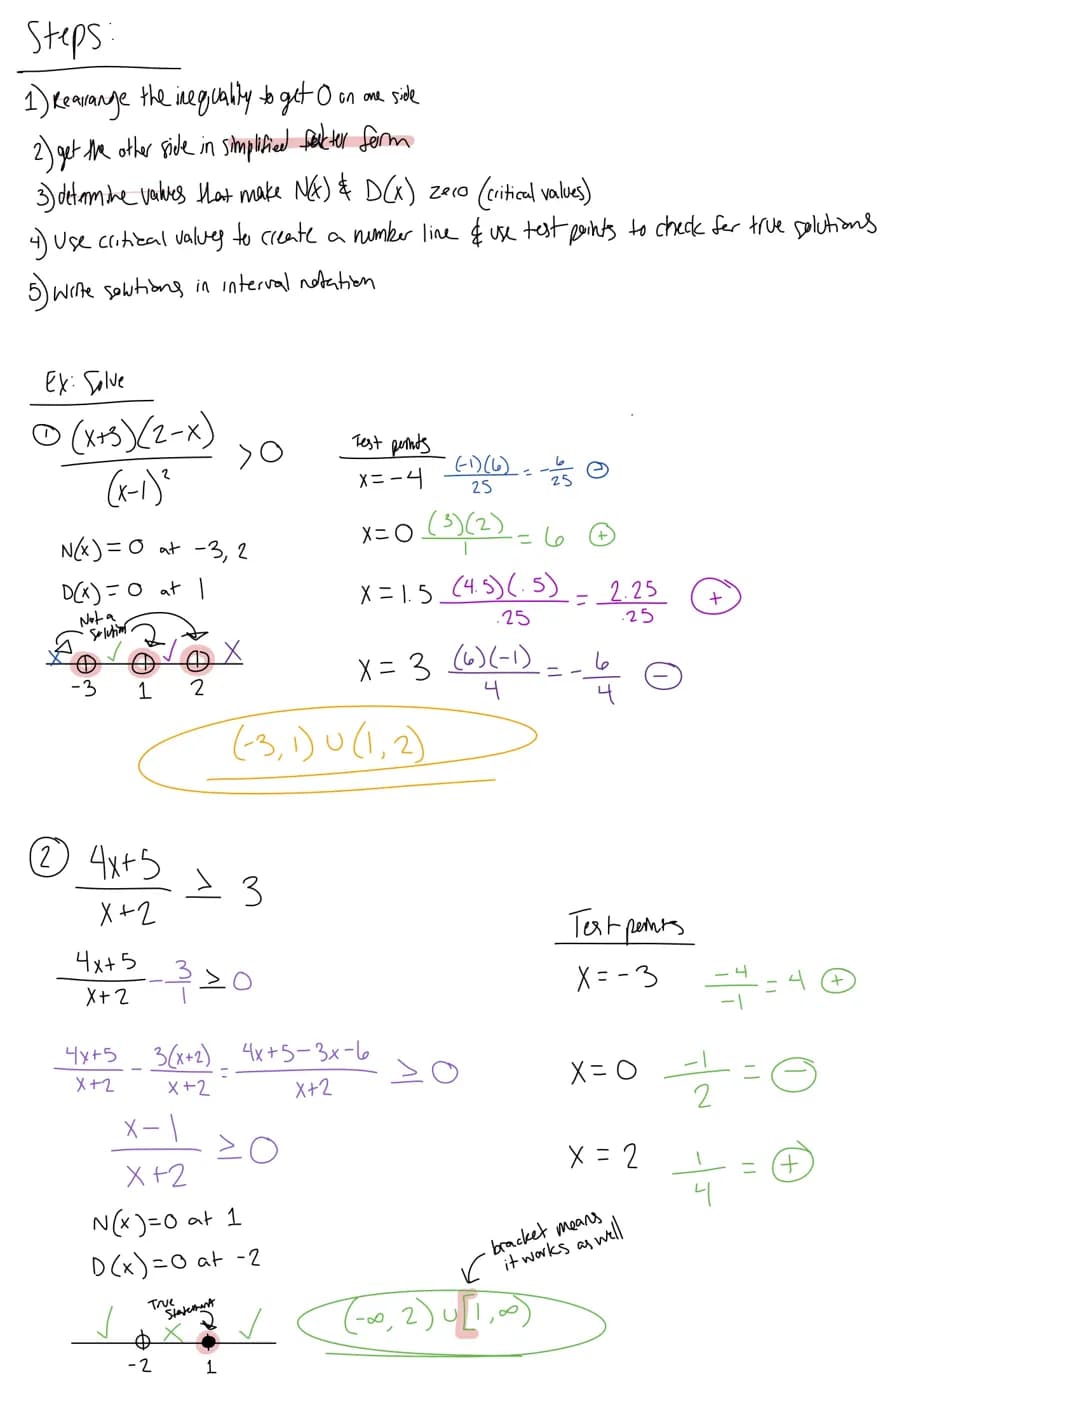 Steps:
1) Rearange the inequality to get 0 on one side
2) get the other side in simplified factor form
3) determine values that make N(x) & D(x) zero (critical values)
4) Use critical values to create a number line & use test points to check for true solutions
5) Write solutions in interval notation
Ex: Solve
① (x+3)(2-x) / (x-1)² >0
N(x)=0 at -3, 2
D(x)=0 at 1
Not a
solution
x ✓ ✓ x
-3 1 2
Test points
x=-4 (-1)(6)/25 = -6/25 ⊖
x=0 (3)(2)/1 = 6 ⊕
x=1.5 (4.5)(.5)/.25 = 2.25/.25 ⊕
x=3 (6)(-1)/4 = -6/4 ⊖
(-3,1)∪(1,2)
② 4x+5 / x+2 ≥ 3
4x+5 / x+2 - 3/1 ≥0
4x+5 / x+2 - 3(x+2) / x+2 = 4x+5-3x-6 / x+2 ≥0
x-1 / x+2 ≥0
N(x)=0 at 1
D(x)=0 at -2
True
Statement
✓ x ✓
-2 1
Test points
x=-3 -4/-1 = 4 ⊕
x=0 -1/2 = ⊖
x=2 1/4 = ⊕
bracket means
it works as well
(-∞,2)∪[1,∞)